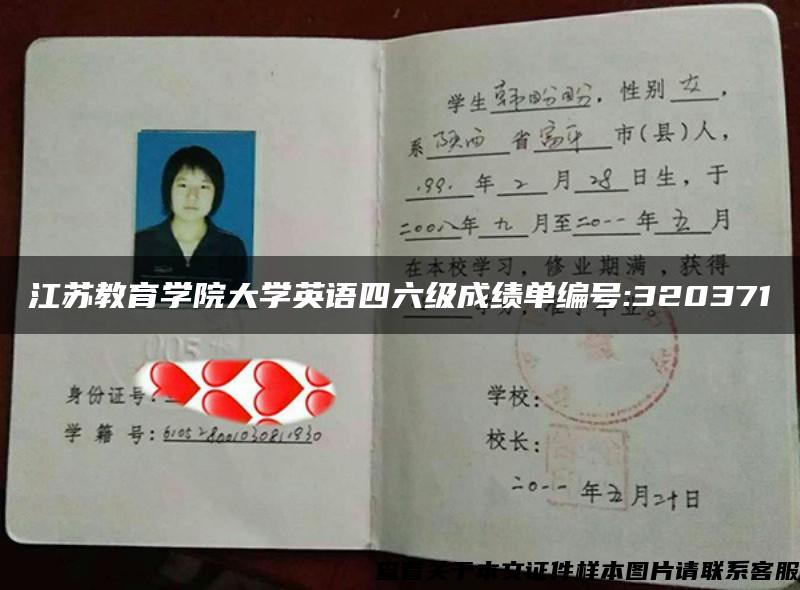 学生韩盼盼，性别女，
系陕西省富平市(县)人，
1991年2月28日生，于
二00八年九月至二0一一年五月
在本校学习，修业期满，获得
江苏教育学院大学英语四六级成绩单编号:320371
005
身份证号:
学籍号:610528001030811930
学校:
校长:
二0一一年五月二十日
查看关于本文证件样本图片请联系客服